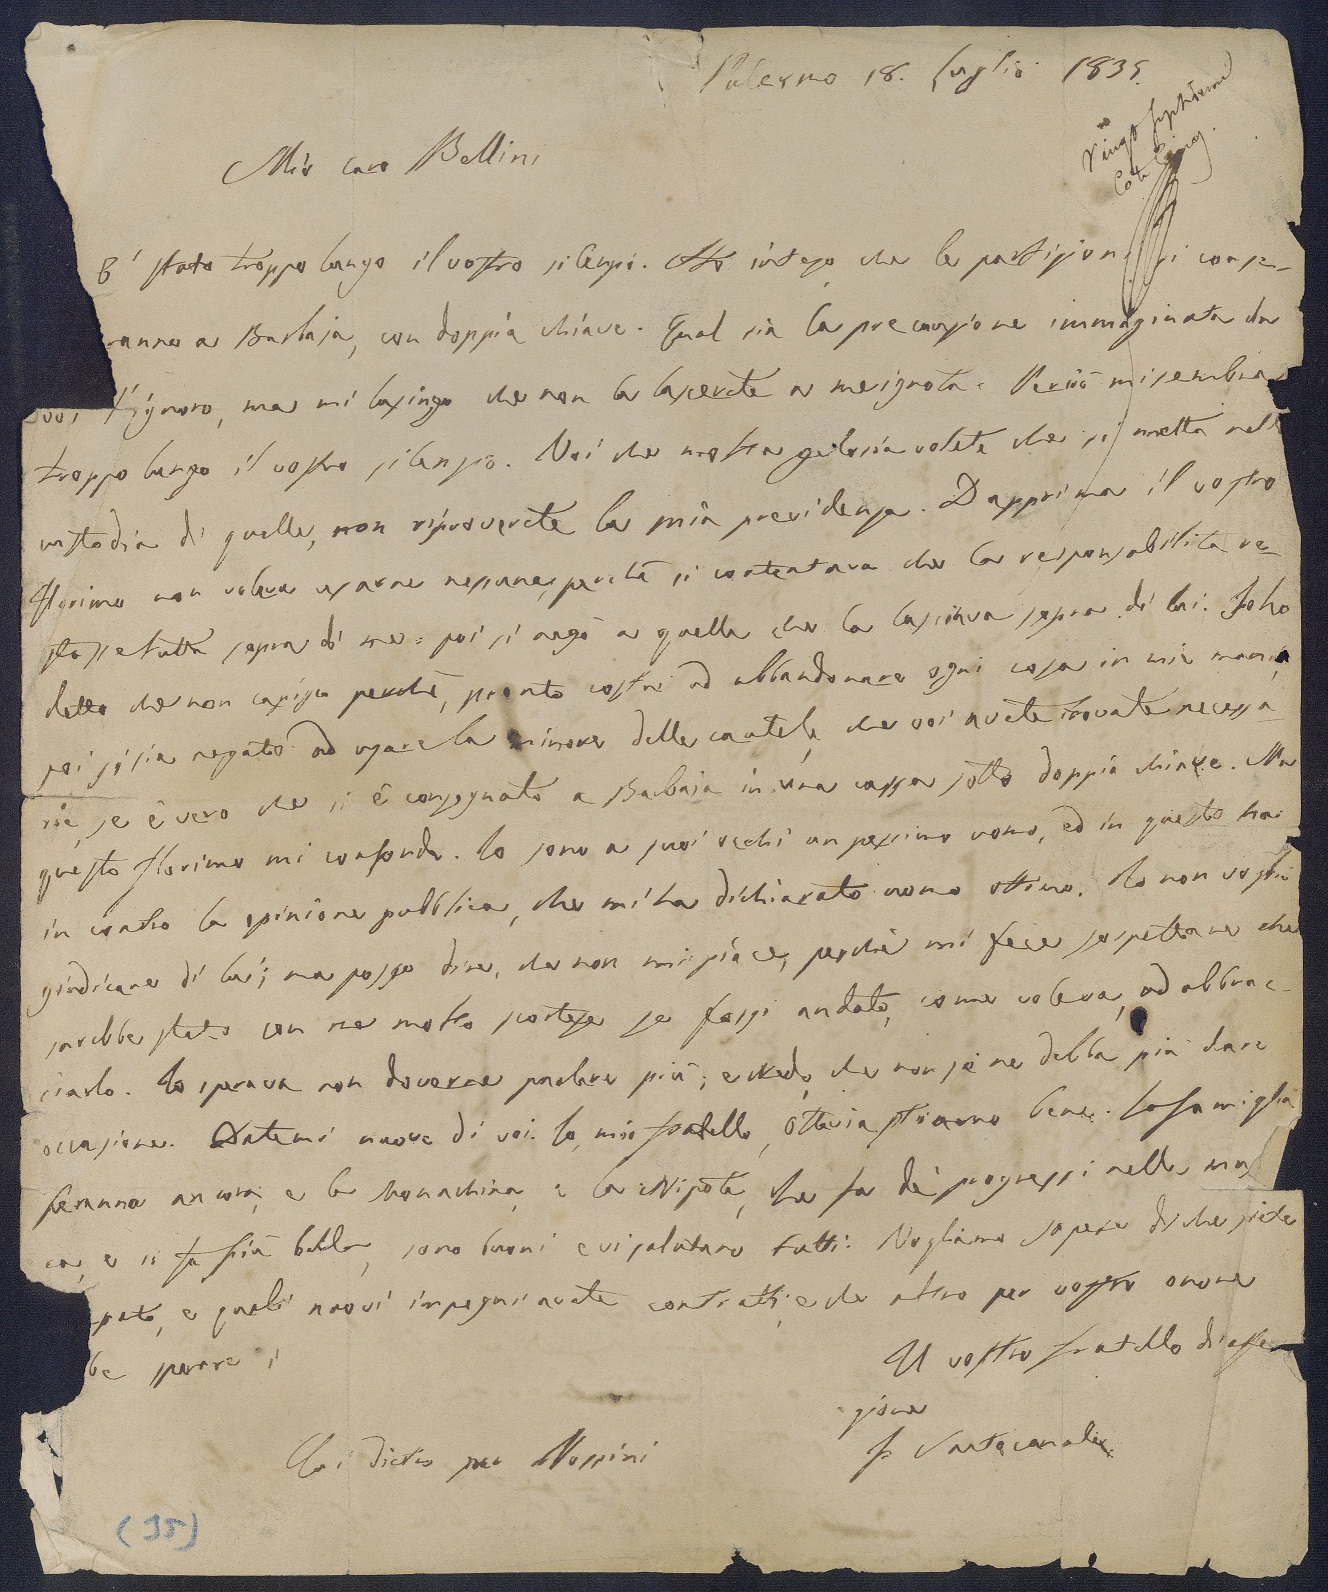 Palermo 18. Luglio 1835.
Mio caro Bellini
E' stato troppo lungo il vostro silenzio. Ho inteso che le partizioni si conse-
ranno a Barbaja, con doppia chiave. Qual sia la precauzione immaginata da
voi l'ignoro, ma mi lusingo che non la lascerete a me ignota. Perciò mi sembra
troppo lungo il vostro silenzio. Voi che molta gelosia volete che si metta nella
custodia di quelle, non riproverete la mia previdenza. Dapprima il vostro
Florimo non voleva usarne nessuna, perchè si contentava che la responsabilità re-
stasse tutta sopra di me: poi si negò a quella che la lasciava sopra di lui. Io ho
detto che non capisco perchè, pronto costui ad abbandonare ogni cosa in mia mano,
poi si sia negato ad usare la minore delle cautele, che voi avete trovate necessa
rie, se è vero che si è consegnato a Barbaja in una cassa sotto doppia chiave. Ma
questo Florimo mi confonde. Io sono a suoi occhi un pessimo uomo, ed in questo ha
in contro la opinione pubblica, che mi ha dichiarato uomo ottimo. Io non voglio
giudicare di lui; ma posso dire, che non mi piace, perchè mi fece sospettare che
sarebbe stato con me molto scortese se fossi andato, come voleva, ad abbrac-
ciarlo. Io sperava non doverne parlare più; e credo, che non se ne debba più dare
occasione. Datemi nuove di voi. Io, mio fratello, Ottavia stiamo bene. La famiglia
Ieranno ancora, e la Monachina, e la Nipote, che fa de' progressi nella mus
ca, e si fa più bella, sono buoni e vi salutano tutti. Vogliamo sapere di che siete
pato, e quali nuovi impegni avete contratti, e che altro per vostro onore
be sperare si
Il vostro fratello di affe
zione
F. Santocanale
Qui dietro per Rossini
(35)